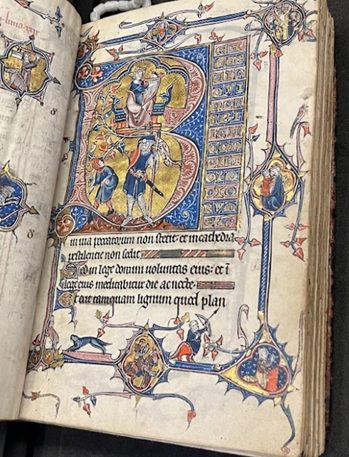 in uia peccatorum non stetit et in cathedra
pestilencie non sedit
Sed in lege domini uoluntas eius et i
lege eius meditabitur die ac nocte
Et erit tamquam lignum quod plan